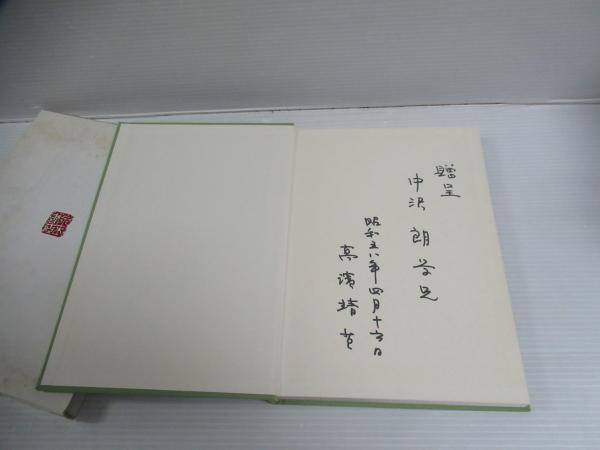 贈呈
中沢 朗 学兄
昭和五八年四月十六日
高濱靖